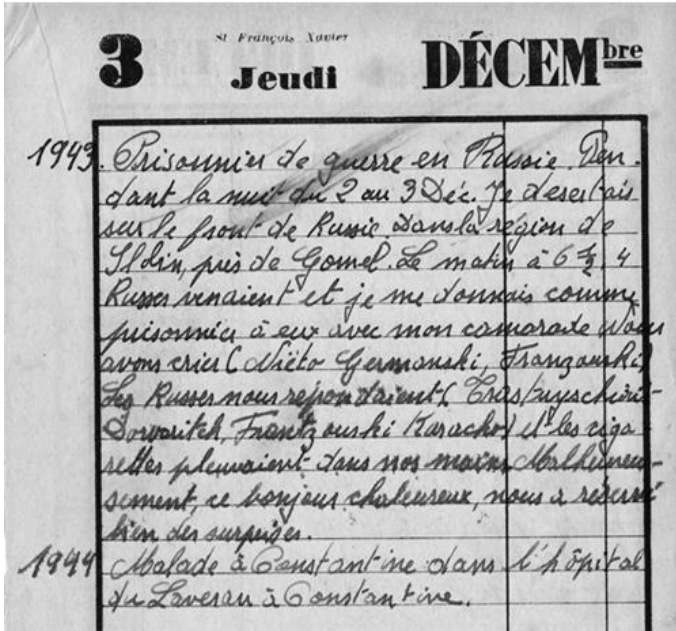 3
St François Xavier
Jeudi
DÉCEMbre
1943. Prisonnier de guerre en Russie. Pen-
dant la nuit du 2 au 3 Déc. Je desertais
sur le front de Russie. Dans la région de
près de Gomel. Le matin à 6 ½ 4
Russes venaient et je me donnais comme
prisonnier à eux avec mon camarade Nous
avons crier (Niéto Germanski, Franzouski)
Les Russes nous repondaient (
Dovaritch, Frantzouski Karacho) et les ciga-
rettes pleuvaient dans nos mains. Malheureu-
sement, ce bonjour chaleureux, nous a réservé
bien des surprises.
1944 Malade à Constantine dans l'hôpital
du Laveran à Constantine.